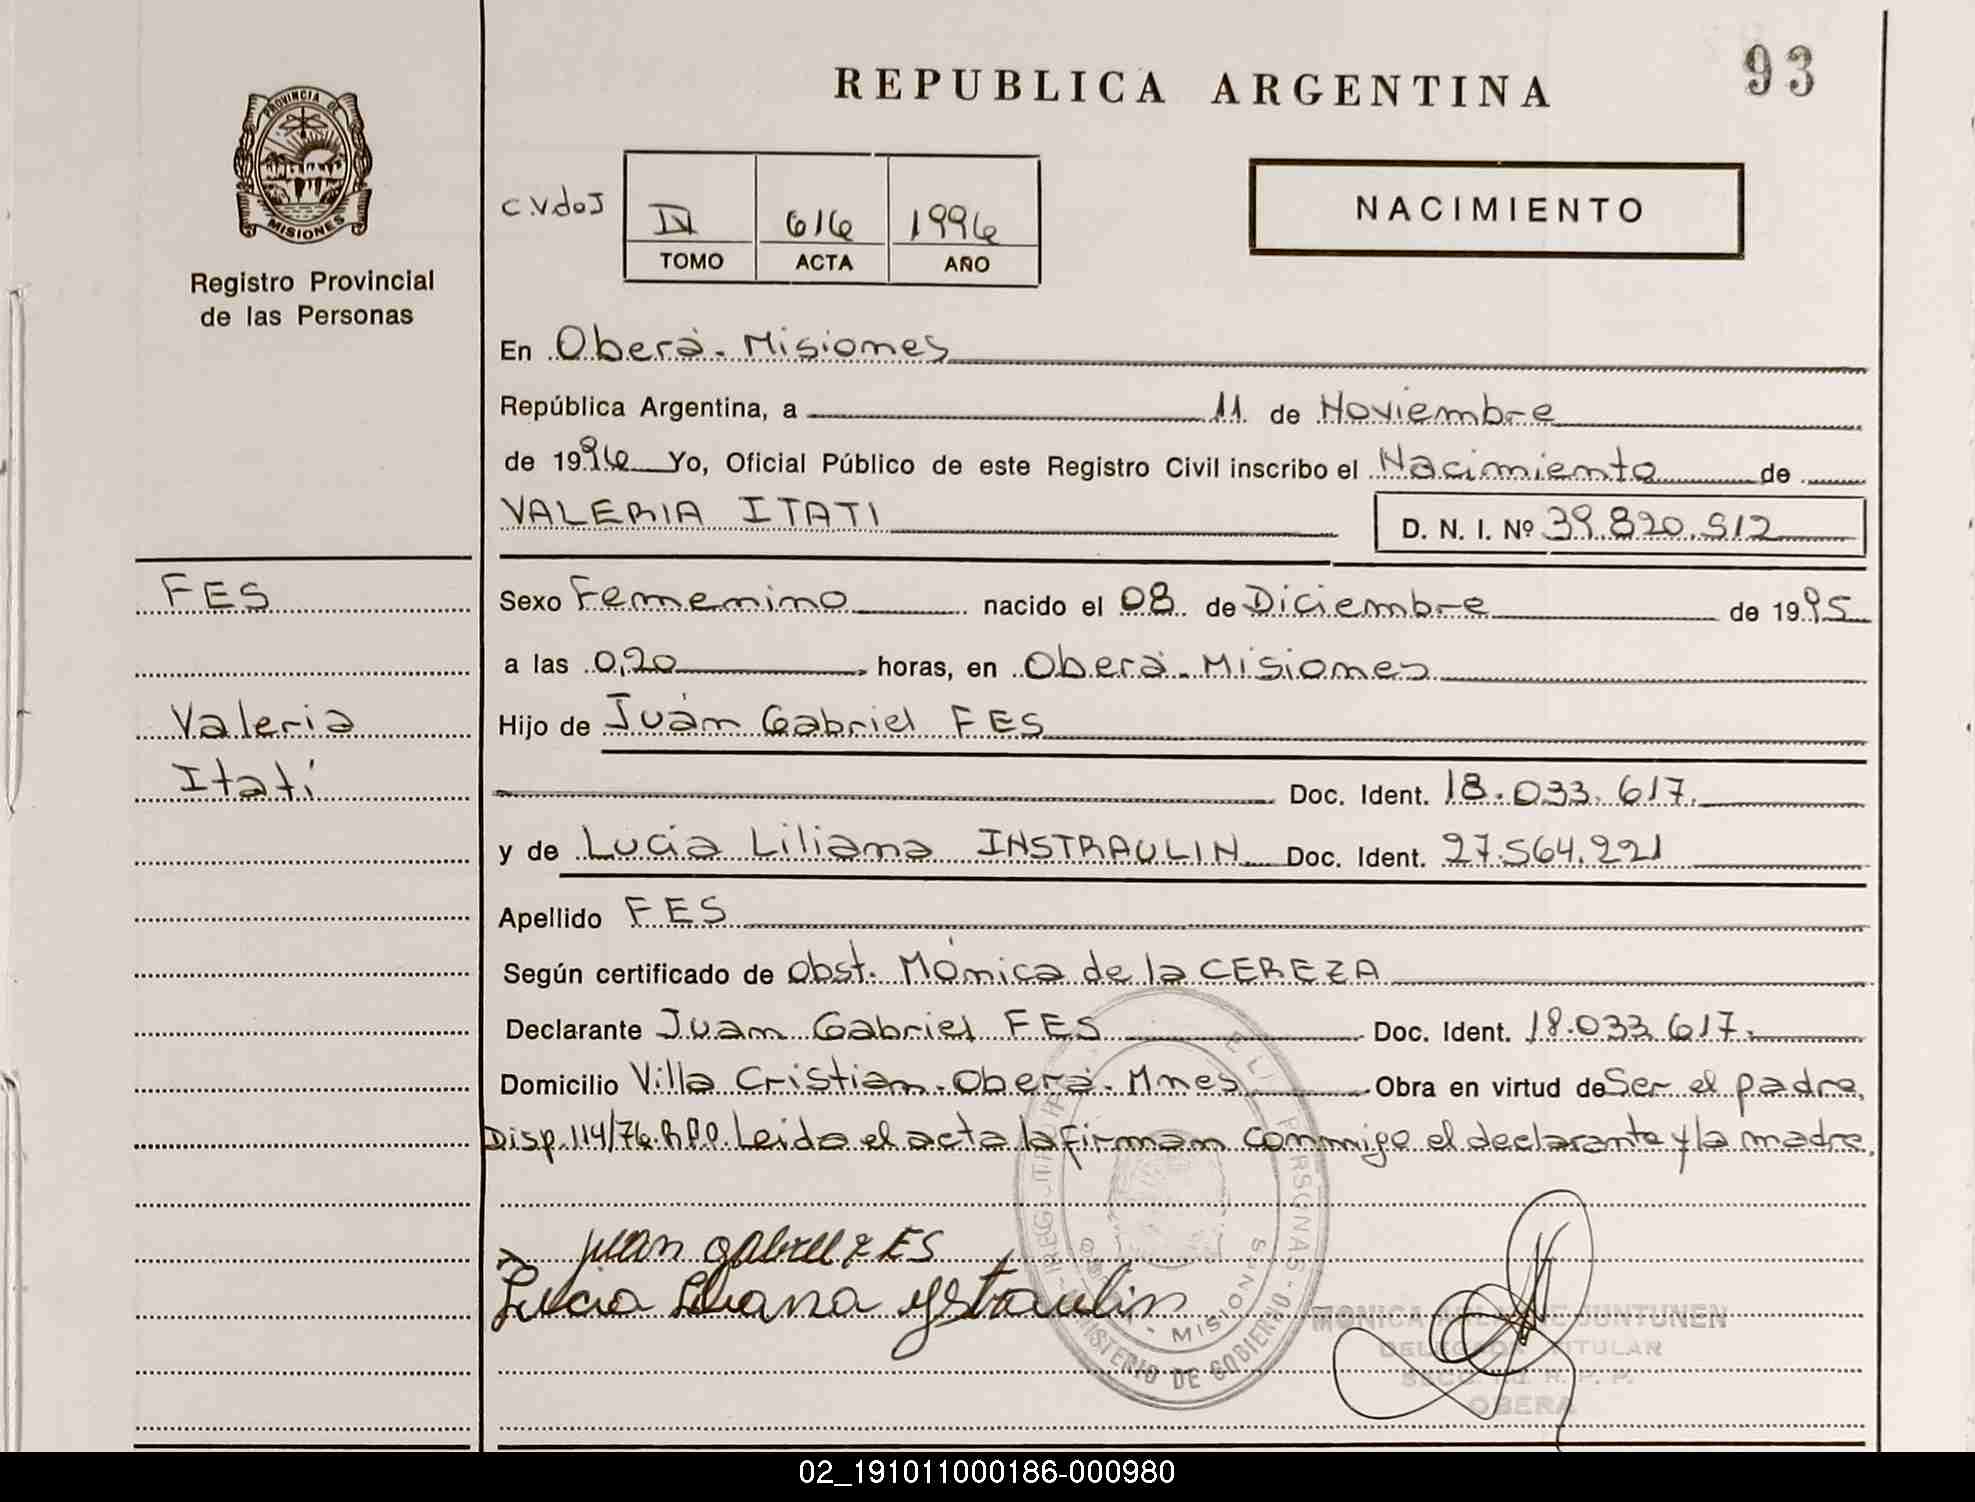 REPUBLICA ARGENTINA
93
PROVINCIA DE
MISIONES
Registro Provincial
de las Personas
C.V.doJ
IV 616 1996
TOMO ACTA AÑO
NACIMIENTO
En Oberá - Misiones
República Argentina, a 11 de Noviembre
de 1996 Yo, Oficial Público de este Registro Civil inscribo el Nacimiento de
VALERIA ITATI
D. N. I. Nº 39.820.512
FES
Sexo Femenino nacido el 08 de Diciembre de 1995
a las 0,20 horas, en Oberá - Misiones
Valeria
Hijo de Juán Gabriel FES
Itatí
Doc. Ident. 18.033.617.
y de Lucia Liliana INSTRAULIN Doc. Ident. 27.564.221
Apellido FES
Según certificado de Obst. Mónica de la CEREZA
Declarante Juan Gabriel FES Doc. Ident. 18.033.617.
Domicilio Villa Cristian - Oberá - Mnes Obra en virtud de Ser el padre,
Disp. 114/76.R.P.P. Leida el acta la firman conmigo el declarante y la madre.
juan gabriel FES
Lucia Liliana ystraulin
MINISTERIO DE GOBIERNO
MISIONES
MONICA JUNTUNEN
DELEGADA TITULAR
R. P. P.
OBERA
02_191011000186-000980